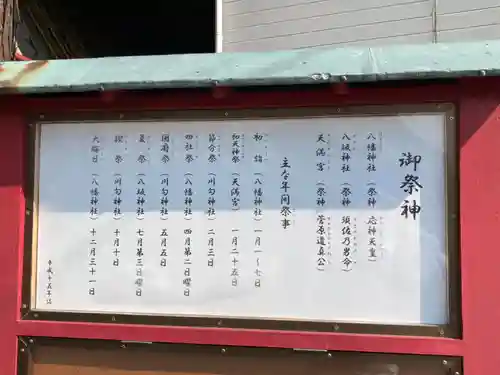 御祭神
八幡神社（祭神　応神天皇）
八坂神社（祭神　須佐乃男命）
天満宮（祭神　菅原道真公）
主な年間祭事
初詣（八幡神社）一月一〜七日
初天神祭（天満宮）一月二十五日
節分祭（川勾神社）二月三日
四社祭（八幡神社）四月第二日曜日
例祭（川勾神社）五月五日
夏祭（八坂神社）七月第三日曜日
祭（川勾神社）十月十日
大晦日（八幡神社）十二月三十一日
平成十五年